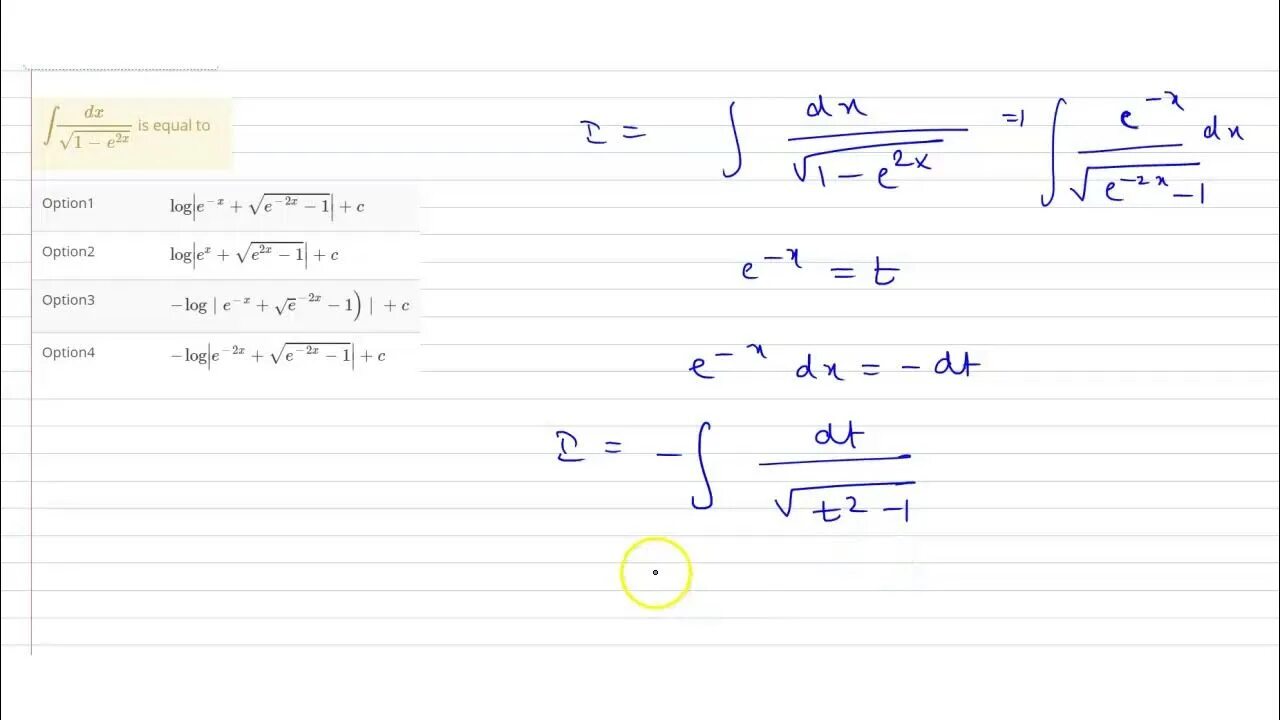 ∫ dx / √(1 − e^{2x}) is equal to
Option1 log|e^{−x} + √(e^{−2x} − 1)| + c
Option2 log|e^{x} + √(e^{2x} − 1)| + c
Option3 −log | e^{−x} + √e^{−2x} − 1) | + c
Option4 −log|e^{−2x} + √(e^{−2x} − 1)| + c
I = ∫ dx / √(1 − e^{2x}) ⇒ ∫ e^{−x} / √(e^{−2x} − 1) dx
e^{−x} = t
e^{−x} dx = − dt
I = − ∫ dt / √(t² − 1)